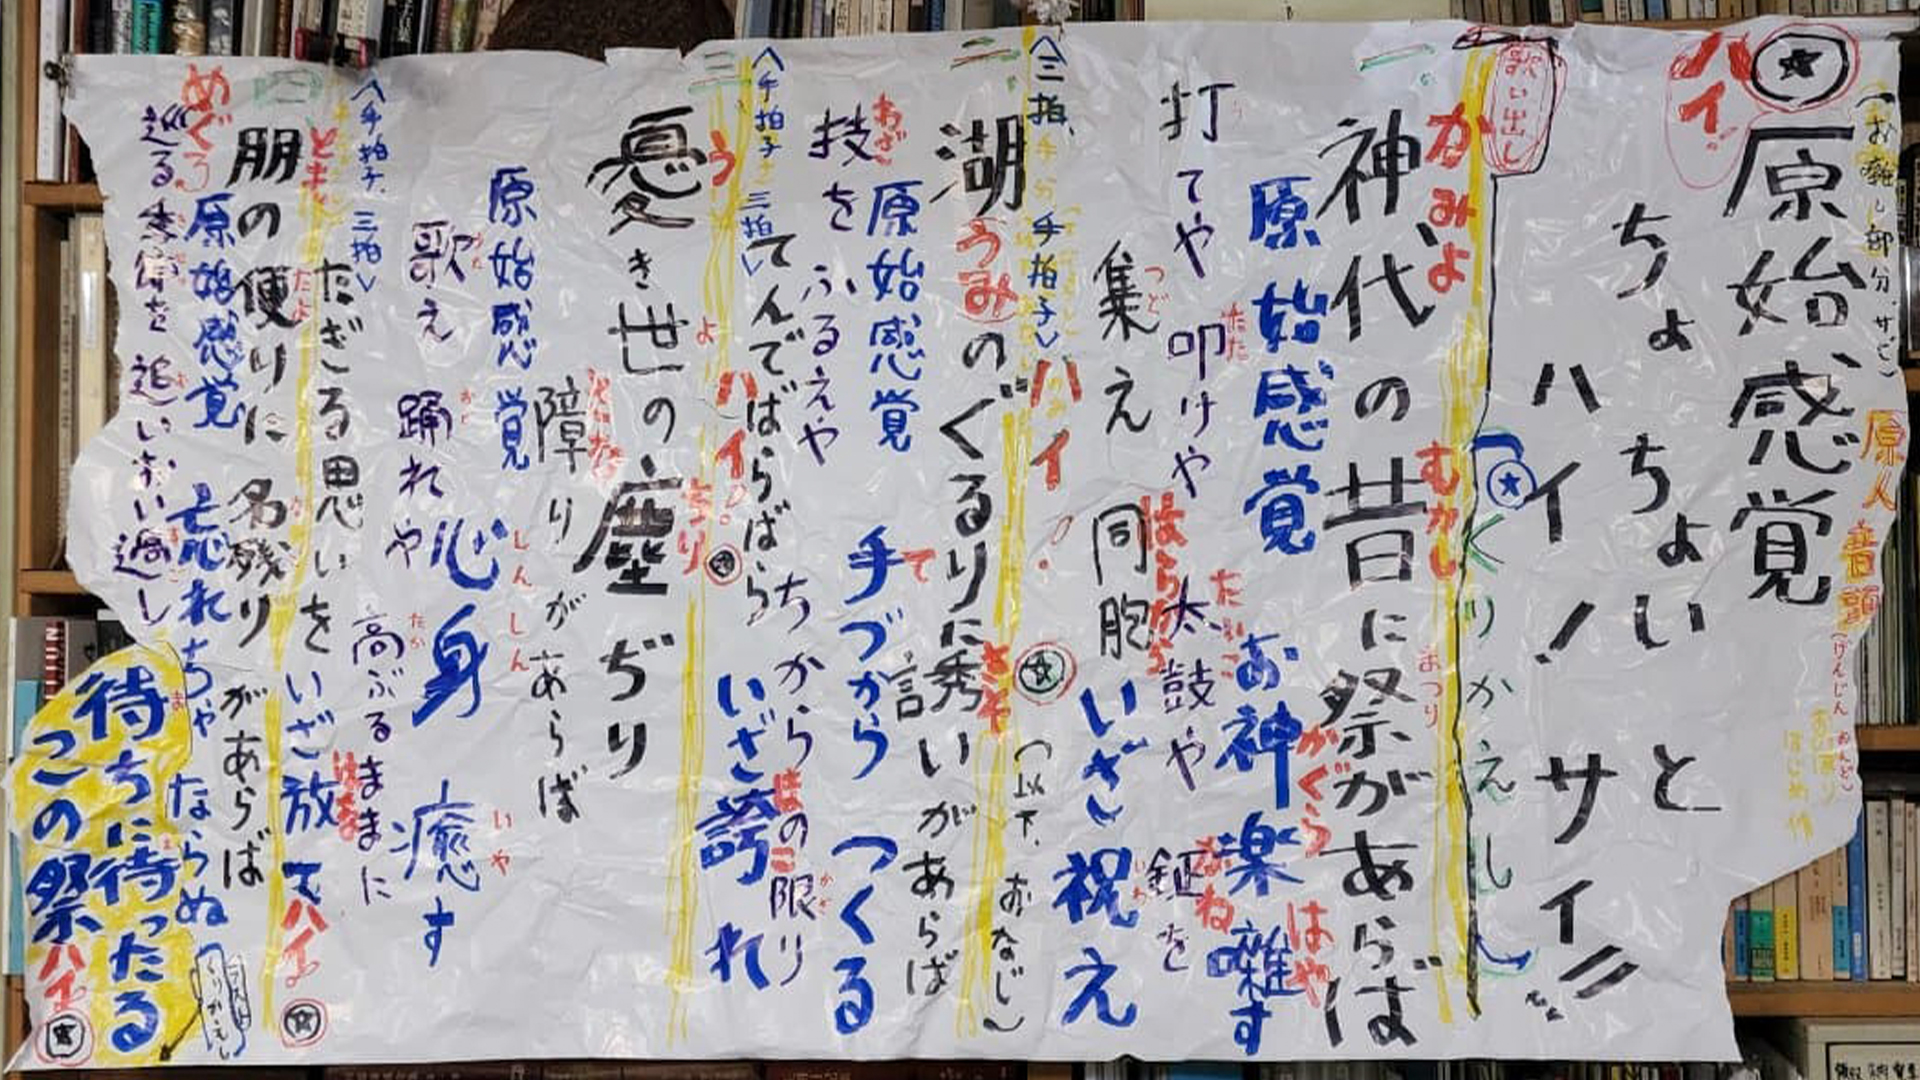 原人音頭
(げんじん おんど)
(お囃し部分、サビ)
ハイ
原始感覚
ちょ ちょいと
ハイ! サイ
歌い出し
くりかえし
一
神代の昔に祭があらば
かみよ むかし まつり
原始感覚 お神楽囃す
かぐら はや
打てや 叩けや 太鼓や 鉦を
う たた たいこ かね
集え 同胞 いざ祝え
つど はらから いわ
〈三拍、手拍子〉
ハイ
(以下、おなじ)
二
湖のぐるりに誘いがあらば
うみ さそ
原始感覚 手づから つくる
て
技を ふるえや ちからの限り
わざ かぎ
てんでばらばら いざ誇れ
ほこ
〈手拍子 三拍〉
ハイ
三
憂き世の塵ぢり
う よ ちり
障りがあらば
原始感覚 心身 癒す
しんしん いや
歌え 踊れや 高ぶるままに
うた おど たか
たぎる思いを いざ放て ハイ
はな
〈手拍子、三拍〉
四
朋の便りに 名残りがあらば
とも たよ
原始感覚 忘れちゃ ならぬ
巡る季節を 追い追い過し
めぐる
待ちに待ったる
ま
この祭 ハイ
くりかえし